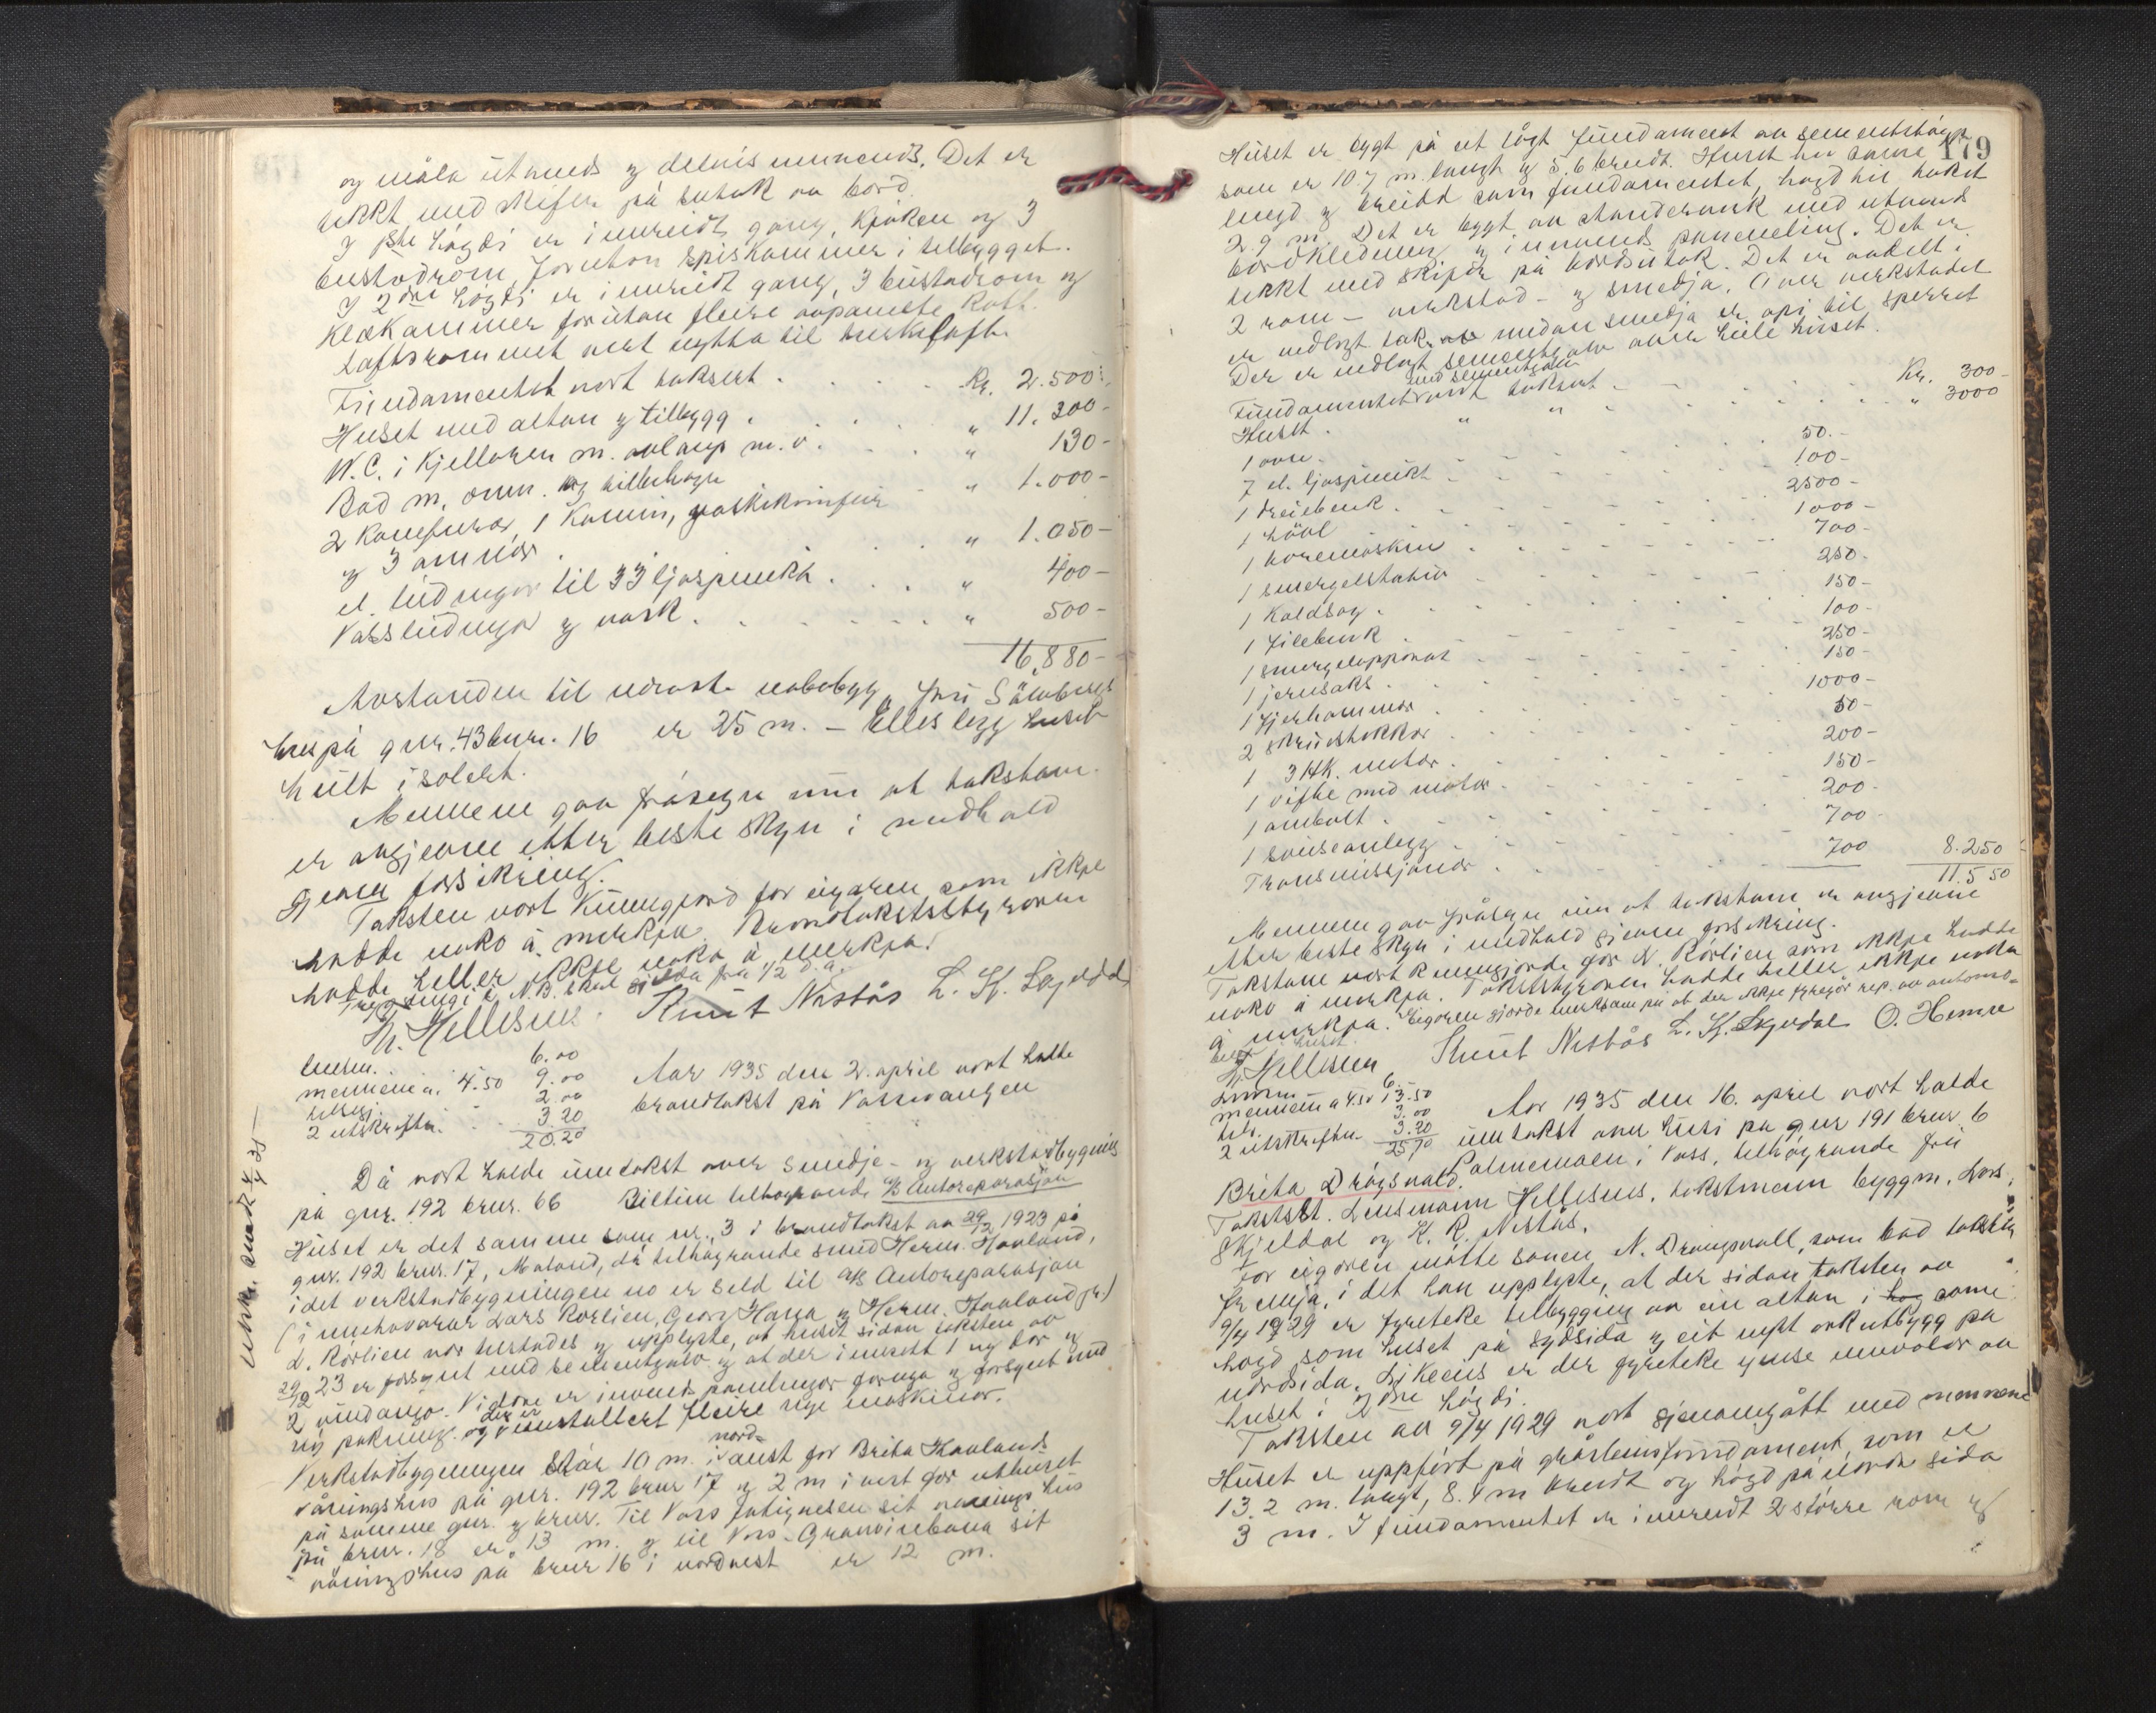 og måla utvends og delvis innvends. Det er
tekkt med skifer på sutak av bord.
I 1ste högdi er innreidt gang, kjöken og 3
bustadrom, forutan spiskammer i tilbygget.
I 2dre högdi er innreidt gang, 3 bustadrom og
klækammer forutan fleire uppanelte kott.
Loftsrommet vert nytta til turkeloft.
Fundamentet vort taksert . . . . Kr. 2.500:
Huset med altan og tilbygg . . . . " 11.300-
W.C. i kjellaren m. avlaup m.v. . . . " 130-
Bad m. omn. og tilbehøyr . . " 1.000-
2 komfurar, 1 kamin, vaskekomfur
og 3 omnar . . . . . " 1.050-
el. leidningar til 33 ljospunkt . . . " 400-
Vassleidningar og vask . . . . . " 500-
16.880-
Avstanden til næraste nabobygg, fru Sämbergs
hus på gnr. 43 bnr. 16 er 25 m. - Elles ligg huset
heilt isolert.
Mennene gav fråsegn um at takstane
er avgjevne etter beste skyn i medhald
gjeven forsikring.
Taksten vort kunngjord for eigaren som ikkje
hadde noko å merkja. Brandtakststyraren
hadde heller ikkje noko å merkja.
N.B. skal gjelda frå 1/2 d.a.
H. Hellesnes. Knut Nestås L. K. Skjeldal
lensm. . 6.00
mennene a. 4.50 9.00
tilsegj. 2.00
2 utskrifter. . . 3.20
20.20
Aar 1935 den 2. april vort halde
brandtakst på Vossevangen
Då vort halde umtakst over smedje- og verkstadbygning
på gnr. 192 bnr. 66 tilhøyrande A/S Autoreparasjon
Huset er det samme som nr. 3 i brandtakst av 29/2 1923 på
gnr. 192 bnr. 17, Moland, då tilhøyrande smed Herm. Haaland,
idet verkstadbygningen no er seld til A/S Autoreparasjon
(innehavarar Lars Rorlien, Georg Haga og Herm. Haaland jr.)
L. Rorlien var tilstades og upplyste, at huset sidan taksten av
29/2 23 er forsynt med sementgolv og at der innsett 1 ny dör og
2 vindaugo. Vidare er innvends panelingar fornya og forsynt med
ny pakning. og der er innstallert fleire nye maskinar.
Verkstadbygningen står 10 m. i nord-aust for Brita Haalands
våningshus på gnr. 192 bnr 17 og 2 m i vest for uthuset
på samme gnr. og bnr. Til Voss Fatignesen sit våningshus
på bnr. 18 er 13 m. og til Voss-Granvinbana sit
våningshus på bnr 16 i nordvest er 12 m.
179
Huset er bygt på et lågt fundament av sementstöyp
som er 10.7 m. langt og 5.6 breidt. Huset har same
lengd og breidd som fundamentet, högd til taket
2.9 m. Det er bygt av standerverk med utvends
bordkledning og innvends paneling. Det er
tekkt med skifer på bordsutak. Det er avdelt i
2 rom - verkstad - og smedja. Over verkstadet
er nedlagt tak, medan smedja er opi til sperret
Der er nedlagt sementgolv over heile huset.
med sementgolv
Fundamentet vart taksert . . . . . Kr. 300-
Huset . " " . . . . . " 3000
1 omn . . . . . 50.-
7 el. ljospunkt . . . . . 100-
1 dreiebenk . . . . . 2500-
1 hövl . . . . . 1000-
1 boremaskin . . . . . 700-
1 smergelstativ . . . . . 250-
1 kaldsag . . . . . 150-
1 filebenk . . . . . 100-
1 smergelapparat . . . . . 250-
1 jernsaks . . . . . 150-
1 fjerhammar . . . . . 1000-
2 skruestikkar . . . . . 50-
1 3 HK. motor . . . . . 200-
1 vifte med motor . . . . . 150-
1 ambolt . . . . . 200-
1 sveiseanlegg . . . . . 700-
Transmissjonar . . . . . 700 8.250:
11.550
Mennene gav fråsegn um at takstane er avgjevne
etter beste skyn i medhald gjeven forsikring.
Takstane vort kunngjorde for L. Rorlien som ikkje hadde
noko å merkja. Takststyraren hadde heller ikkje noko
å merkja. Eigaren gjorde merksam på at der ikkje fyregår rep. av automo-
bilar i huset.
H. Hellesnes Knut Nestås L. K. Skjeldal O. Hemre
Lensm 6.-
mennene a 4.50 13.50
tils. 3.00
2 utskrifter 3.20
25.70
Aar 1935 den 16. april vort halde
umtakst over husi på gnr 191 bnr. 6
Palmemoen i Voss, tilhøyrande fru
Brita Drögsvald.
Takstst. Lensmann Hellesnes, takstmenn byggm. Lars
Skjeldal og K. R. Nestås.
For eigaren møtte sonen N. Drøugsvoll, som bad taksten
fremja, i det han upplyste, at der sidan taksten av
9/4 1929 er fyreteke tilbygging av ein altan i same
högd som huset på sydsida og eit nytt arkutbygg på
nordsida. Likeeins er der fyreteke ymse umvølar av
huset i 2dre högdi.
Taksten av 9/4 1929 vort gjenomgått med mennene
Huset er uppført på gråsteinsfundament, som er
13.2 m. langt, 8.4 m breidt og högd på nordre sida
3 m. I fundamentet er innreidt 2 större rom og